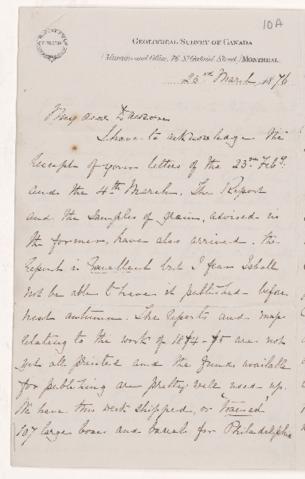 10A
GEOLOGICAL SURVEY OF CANADA
(Museum and Office, 76 St. Gabriel Street,) MONTREAL
25th March 1876
My dear Dawson
I have to acknowledge the
receipt of your letters of the 23rd Feby.
and the 4th March. The Report
and the samples of grain, advised in
the former, have also arrived. The
report is Excellent but I fear I shall
not be able to have it published before
next autumn. The reports and maps
relating to the work of 1874-75 are not
yet all printed and the funds available
for publishing are pretty well used up.
We have this week shipped, or
107 large boxes and barrels for Philadelphia